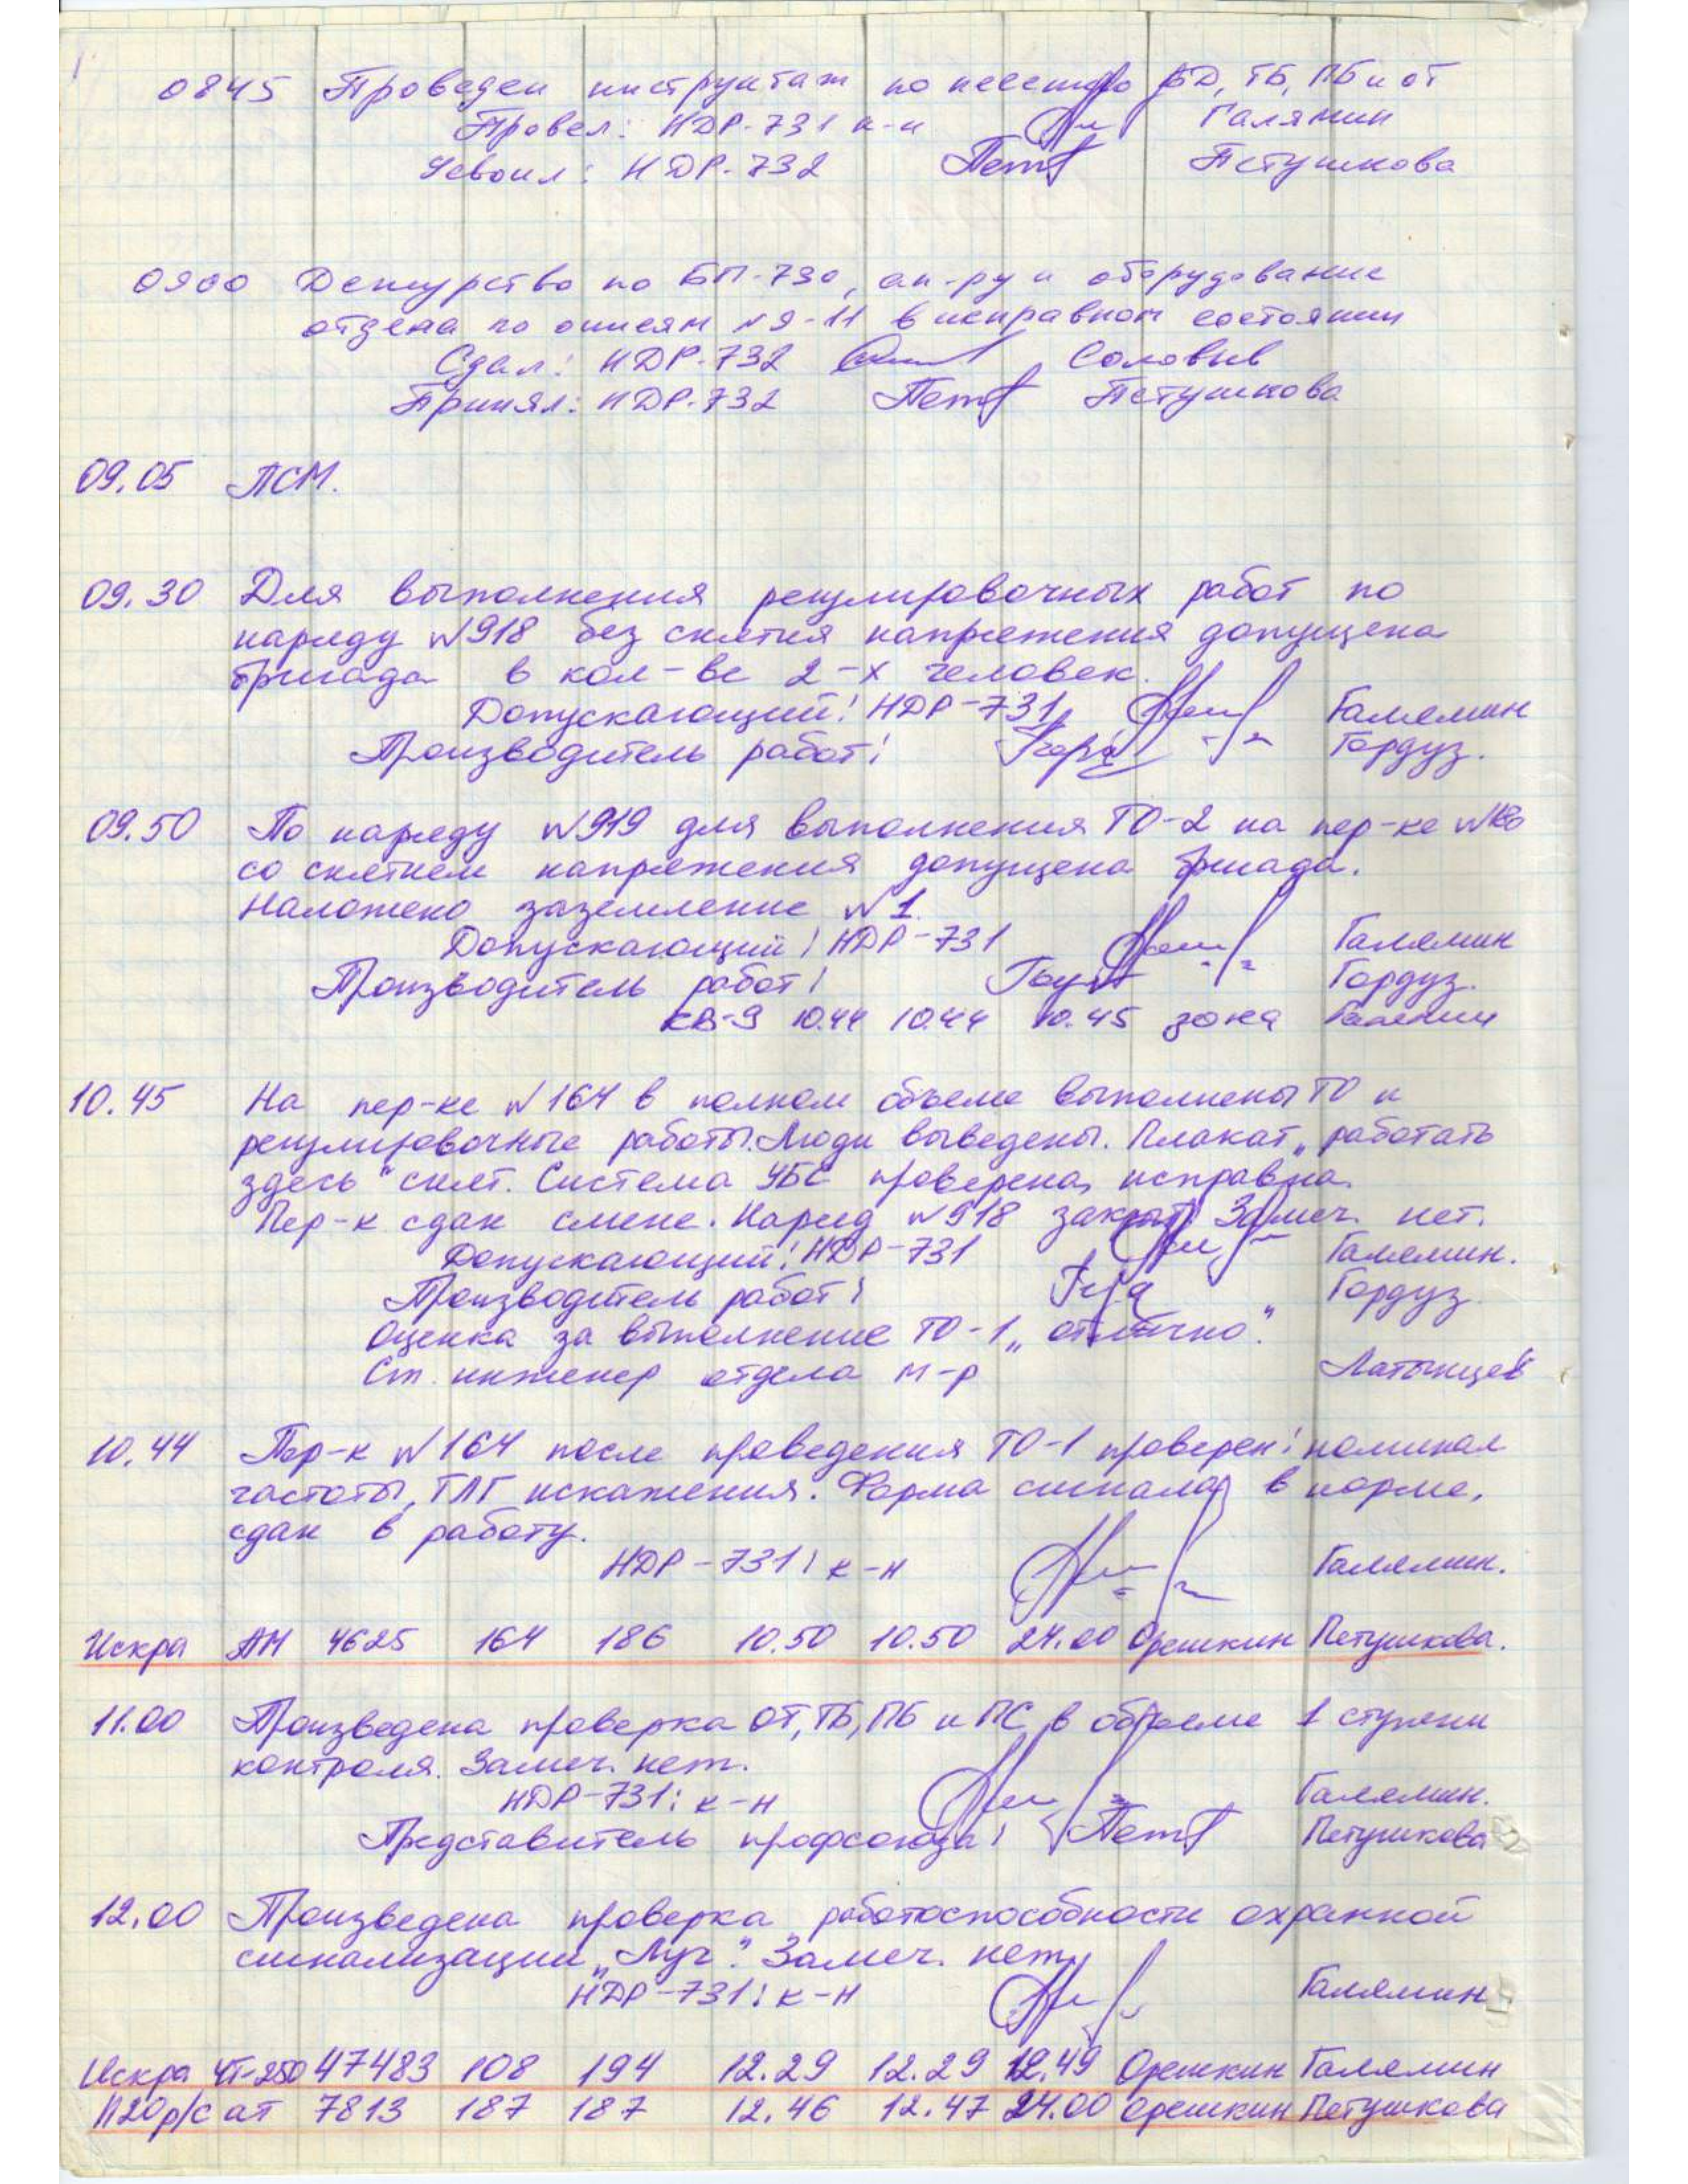 0845 Проведен инструктаж по несению БД, ТБ, ПБ и ОТ
Провел: НДР-731 к-н Галямин
Усвоил: НДР-732 Петушкова
0900 Дежурство по БП-730, ап-ру и оборудование
отдела по описям №9-11 в исправном состоянии
Сдал: НДР-732 Соловьев
Принял: НДР-732 Петушкова
09.05 ПСМ.
09.30 Для выполнения регулировочных работ по
наряду №918 без снятия напряжения допущена
бригада в кол-ве 2-х человек.
Допускающий: НДР-731 Галямин
Производитель работ: Гордуз.
09.50 По наряду №919 для выполнения ТО-2 на пер-ке
со снятием напряжения допущена бригада.
Наложено заземление №1.
Допускающий: НДР-731 Галямин
Производитель работ: Гордуз.
КВ-9 10.44 10.44 10.45 зона Галямин
10.45 На пер-ке №164 в полном объеме выполнены ТО и
регулировочные работы. Люди выведены. Плакат „работать
здесь" снят. Система УБС проверена, исправна.
Пер-к сдан смене. Наряд №918 закрыт. Замеч. нет.
Допускающий: НДР-731 Галямин.
Производитель работ: Гордуз
Оценка за выполнение ТО-1 „отлично".
Ст. инженер отдела м-р Латынцев
10.44 Пер-к №164 после проведения ТО-1 проверен: номинал
частоты, ТЛГ искажения. Форма сигнала в норме,
сдан в работу.
НДР-731: к-н Галямин.
Искра АМ 4625 164 186 10.50 10.50 24.00 Орешкин Петушкова.
11.00 Произведена проверка ОТ, ТБ, ПБ и ПС в объеме 1 ступени
контроля. Замеч. нет.
НДР-731: к-н Галямин.
Представитель профсоюза: Петушкова
12.00 Произведена проверка работоспособности охранной
сигнализации „Луч". Замеч. нет.
НДР-731: к-н Галямин
Искра ЧТ-250 47483 108 194 12.29 12.29 12.49 Орешкин Галямин
П20 р/с ат 7813 187 187 12.46 12.47 24.00 Орешкин Петушкова